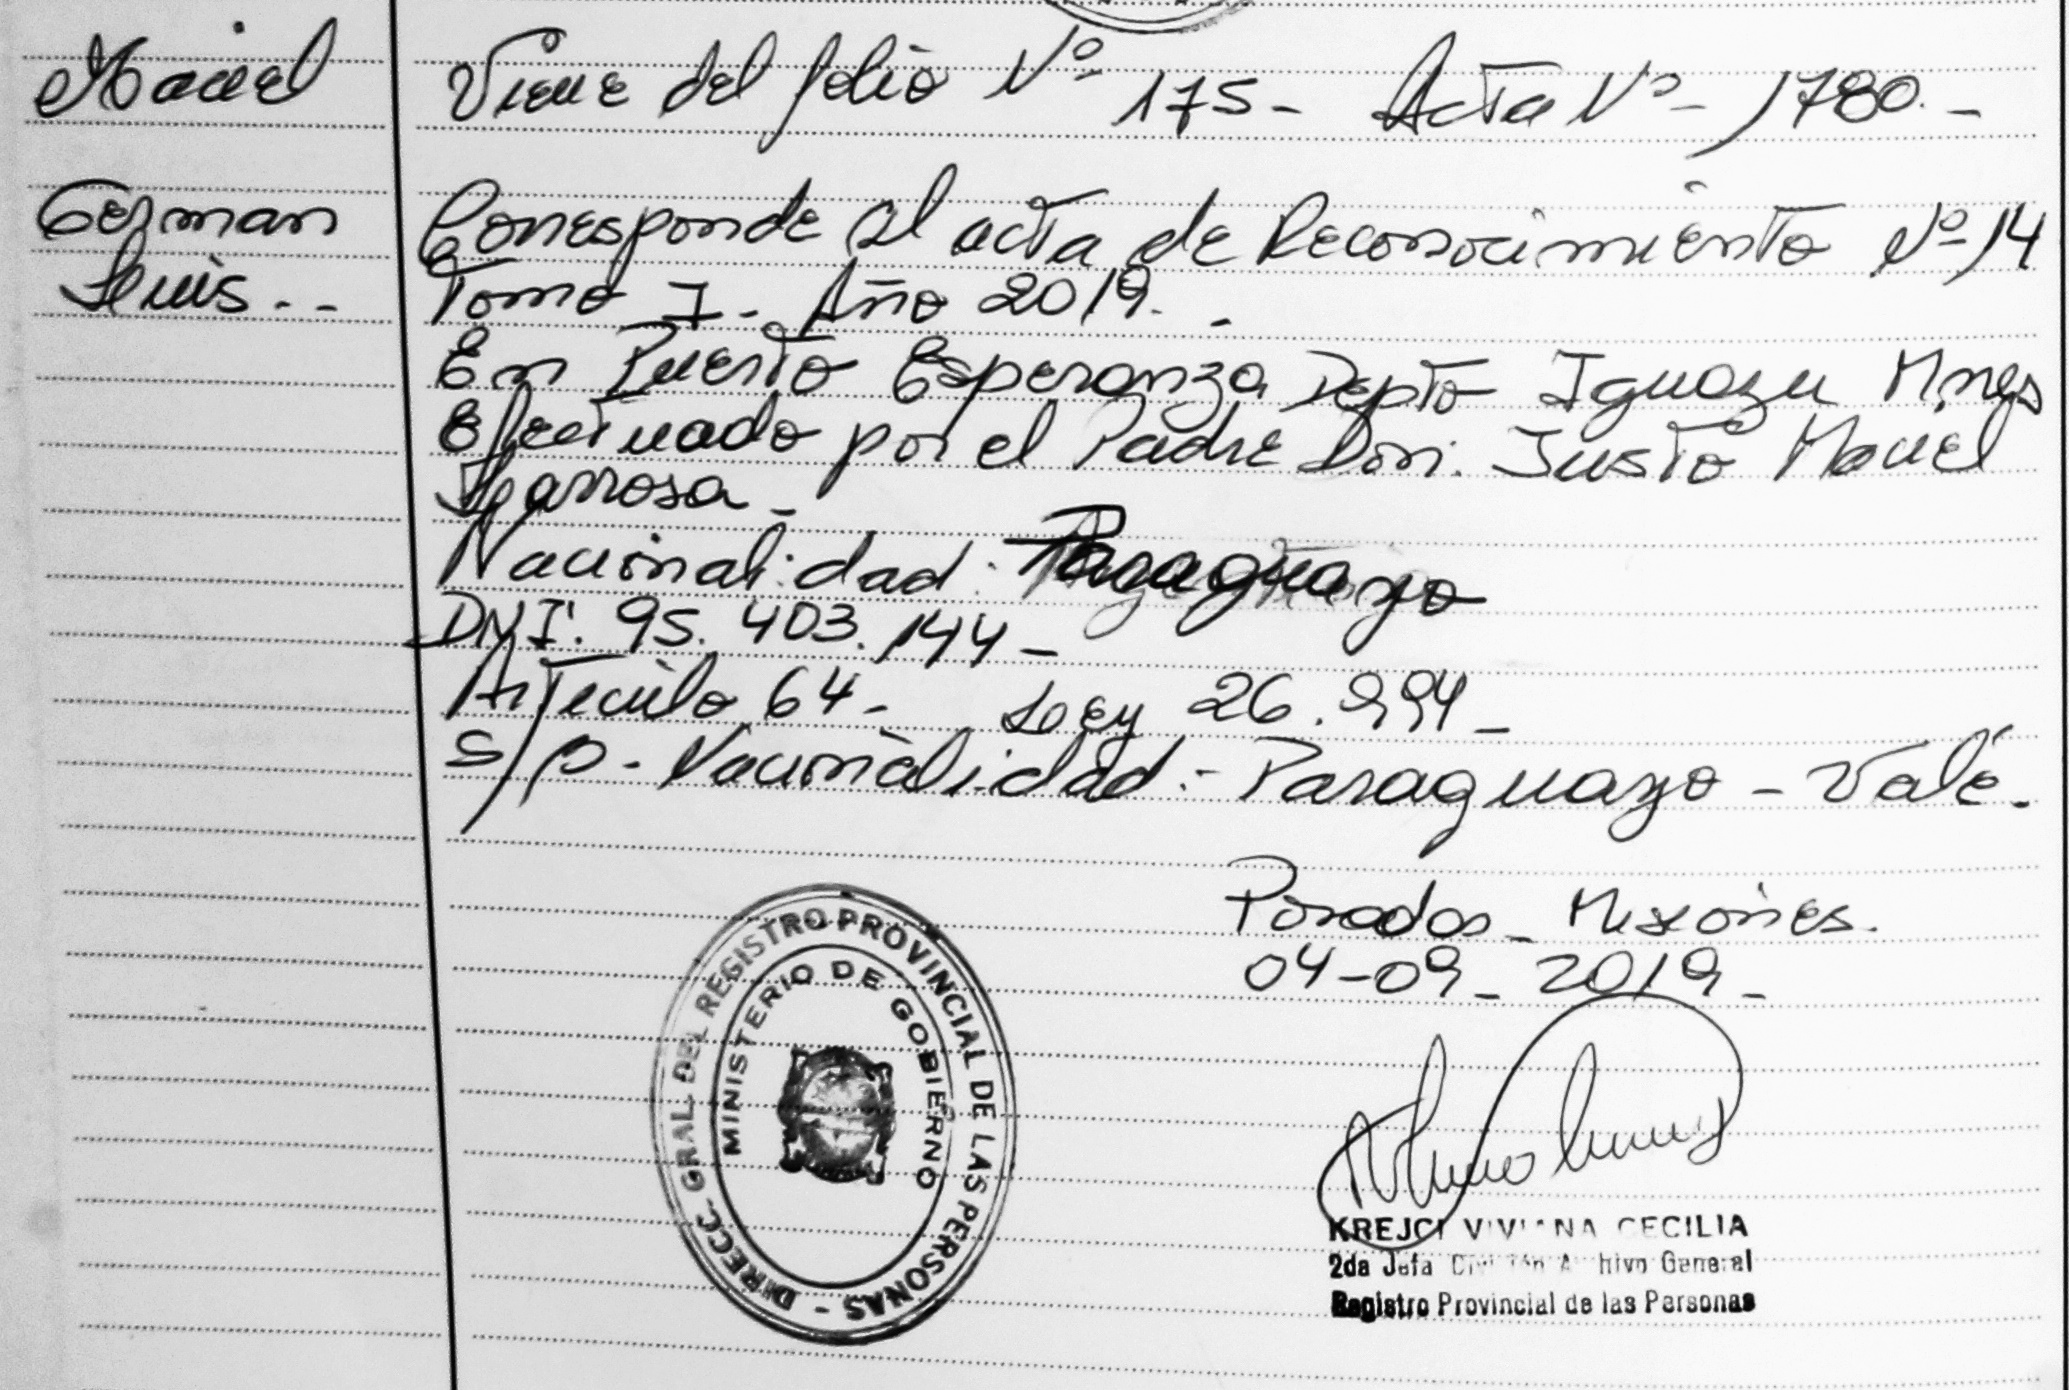 Maciel
German
Luis. - -
Viene del folio Nº 175 - Acta Nº - 1780. -
Corresponde al acta de Reconocimiento Nº 14
Tomo I - Año 2019. -
En Puerto Esperanza Depto Iguazu Mnes
Efectuado por el Padre Don. Justo Maciel
Nacionalidad. Paraguayo
DNI. 95.403.144 -
Articulo 64 - Ley 26.994 -
S/p - Nacionalidad - Paraguayo - Vale.
Posadas - Misiones.
04-09-2019 -
DIRECC. GRAL. DEL REGISTRO PROVINCIAL DE LAS PERSONAS -
MINISTERIO DE GOBIERNO
KREJCI VIVIANA CECILIA
2da Jefa División Archivo General
Registro Provincial de las Personas